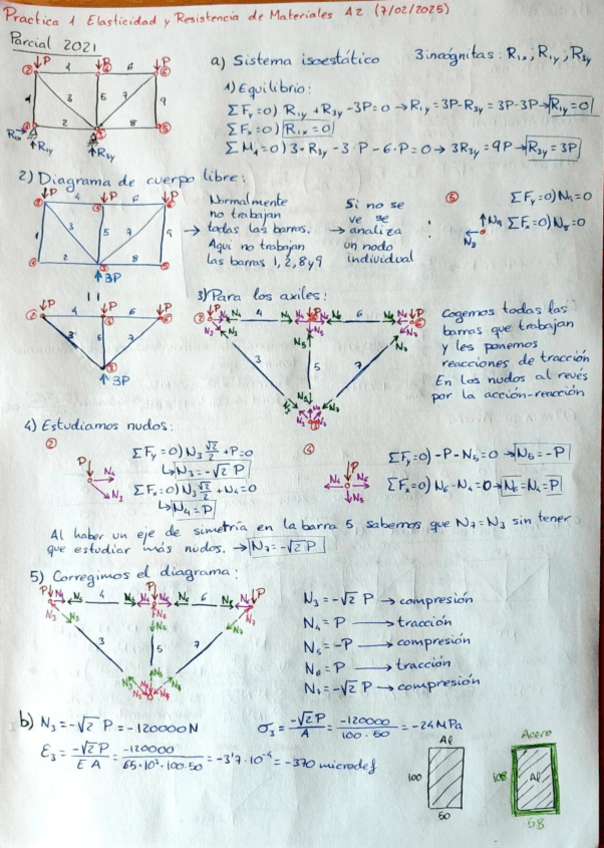 Practica 1 Elasticidad y Resistencia de Materiales A2 (7/02/2025)
Parcial 2021
a) Sistema isoestático 3 incógnitas: R1x; R1y; R3y
1) Equilibrio:
ΣFy=0) R1y+R3y-3P=0→R1y=3P-R3y=3P-3P→R1y=0
ΣFx=0) R1x=0
ΣM1=0) 3·R3y-3·P-6·P=0→3R3y=9P→R3y=3P
2) Diagrama de cuerpo libre:
Normalmente
no trabajan
todas las barras.
Aqui no trabajan
las barras 1, 2, 8 y 9
Si no se
ve se
analiza
un nodo
individual
ΣFy=0) N9=0
ΣFx=0) N8=0
3P
3) Para los axiles:
Cogemos todas las
barras que trabajan
y les ponemos
reacciones de tracción
En los nudos al revés
por la acción-reacción
3P
4) Estudiamos nudos:
ΣFy=0) N3 √2/2 +P=0
↳ N3=-√2 P
ΣFx=0) N3 √2/2 +N4=0
↳ N4=P
ΣFy=0) -P-N5=0→N5=-P
ΣFx=0) N6-N4=0→N6=N4=P
Al haber un eje de simetría en la barra 5, sabemos que N7=N3 sin tener
que estudiar más nudos. → N7=-√2 P
5) Corregimos el diagrama:
N3=-√2 P → compresión
N4=P → tracción
N5=-P → compresión
N6=P → tracción
N7=-√2 P → compresión
b) N3=-√2 P=-120000N σ3=-√2 P/A=-120000/100·50=-24MPa
ε3=-√2 P/E A=-120000/65·10³·100·50=-3'7·10⁻⁴=-370 microdef
Al
100
50
Acero
108
Al
58